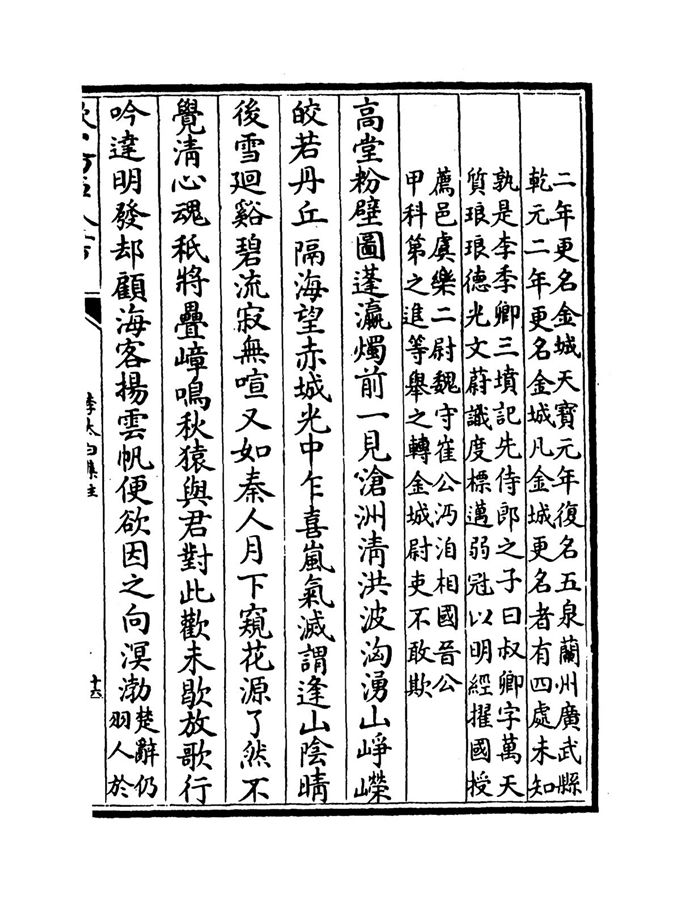 二年更名金城天寶元年復名五泉蘭州廣武縣
乾元二年更名金城凡金城更名者有四處未知
孰是李季卿三墳記先侍郎之子曰叔卿字萬天
質琅琅德光文蔚識度標邁弱冠以明經擢國授
薦邑虞樂二尉魏守崔公沔洎相國晉公
甲科第之進等舉之轉金城尉吏不敢欺
高堂粉壁圖蓬瀛燭前一見滄洲清洪波洶湧山崢嶸
皎若丹丘隔海望赤城光中乍喜嵐氣滅謂逢山陰晴
後雪迴谿碧流寂無喧又如秦人月下窺花源了然不
覺清心魂秖將疊嶂鳴秋猿與君對此歡未歇放歌行
吟達明發却顧海客揚雲帆便欲因之向溟渤
楚辭仍
羽人於
李太白集注
十六